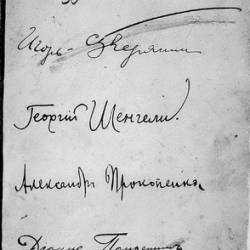 Игорь-Северянин
Георгий Шенгели.
Александръ Прокопенко.